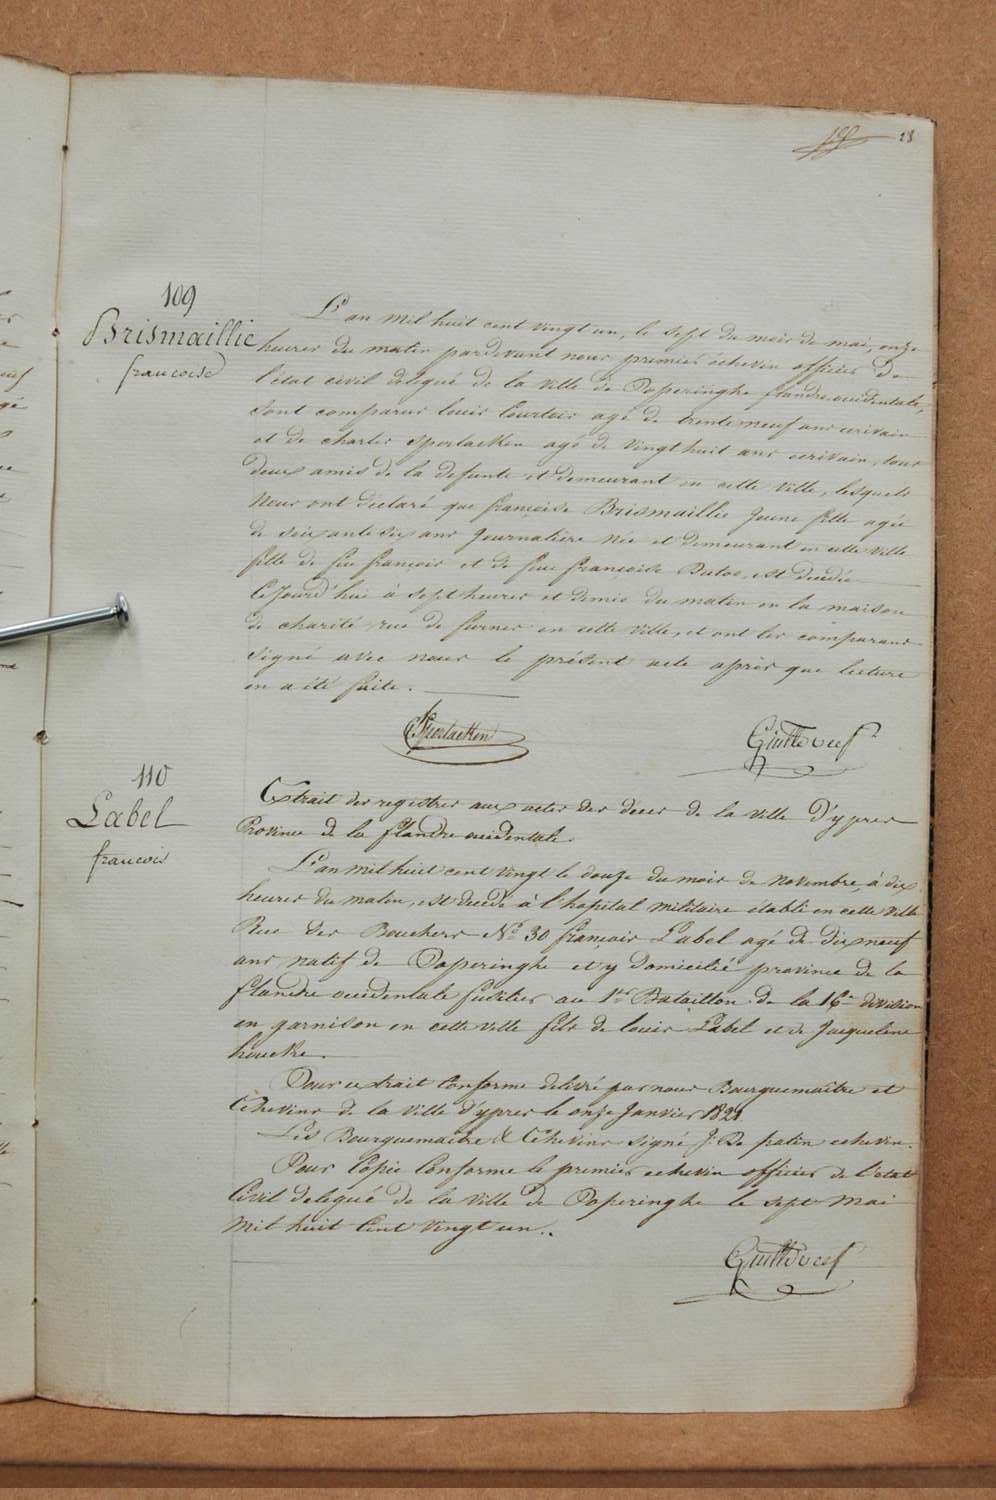 28
109
Brismaillie
francoise
L'an mil huit cent vingt un, le sept du mois de mai, onze
heures du matin pardevant nous premier échevin officier de
l'état civil delegué de la ville de Poperinghe flandre occidentale,
sont comparus louis Courtois agé de trente neuf ans ecrivain
et de charles Sperlaeken agé de vingt huit ans ecrivain, tous
deux amis de la defunte et demeurant en cette ville, lesquels
Nous ont déclaré que françoise Brismaillie Jeune fille agée
de soixante six ans Journaliere Née et demeurant en cette ville
fille de feu françois et de feue françoise Butoe, est decedée
Cejourd'hui à sept heures et demie du matin en la maison
de charité rue de furnes en cette ville, et ont les comparans
signé avec nous le présent acte après que lecture
en a été faite.
CSperlaeken
110
Label
francois
Extrait des registres aux actes des deces de la ville d'ypres
Province de la flandre occidentale
L'an mil huit cent vingt le douze du mois de novembre, à dix
heures du matin, est decedé à l'hopital militaire établi en cette ville
Rue des Bouchers No 30 françois Label agé de dix neuf
ans natif de Poperinghe et y domicilié province de la
flandre occidentale fusilier au 1er Bataillon de la 16e division
en garnison en cette ville fils de louis Label et de Jacqueline
houcke.
Pour extrait Conforme delivré par nous Bourguemaitre et
Echevins de la ville d'ypres le onze Janvier 1821
Les Bourguemaitre & Echevins signé J. De patin echevin.
Pour Copie Conforme le premier echevin officier de l'état
Civil delegué de la ville de Poperinghe le sept Mai
Mil huit Cent vingt un..